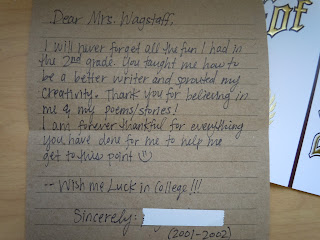 Dear Mrs. Wagstaff,
I will never forget all the fun I had in
the 2nd grade. You taught me how to
be a better writer and sprouted my
creativity. Thank you for believing in
me & my poems/stories!
I am forever thankful for everything
you have done for me to help me
get to this point
-- Wish me Luck in College!!!
Sincerely:
(2001-2002)
of